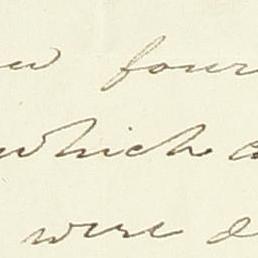 four
which
were